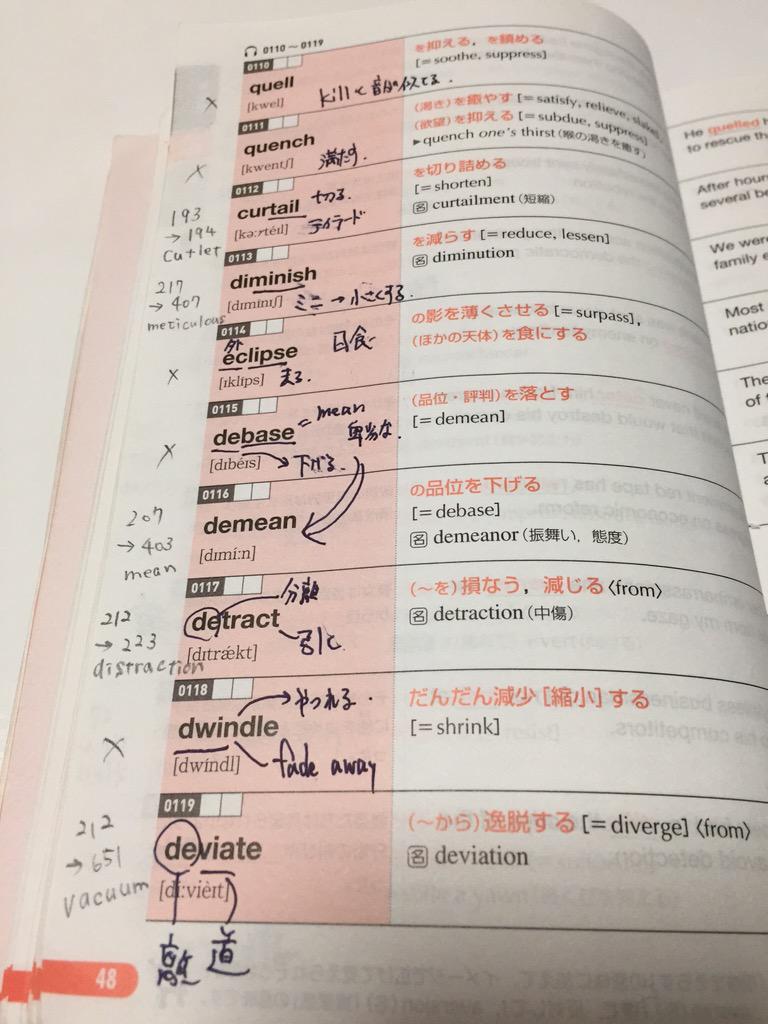 0110～0119
0110
quell
[kwel]
killと音が似てる.
を抑える，を鎮める
[= soothe, suppress]
×
0111
quench
[kwentʃ]
満たす.
(渇き)を癒やす [= satisfy, relieve, slake],
(欲望)を抑える [= subdue, suppress]
▶quench one's thirst (喉の渇きを癒す)
×
0112
curtail
[kəːrtéil]
切る.
テイラード
を切り詰める
[= shorten]
名 curtailment (短縮)
193
→194
Cutlet
0113
diminish
[dɪmínɪʃ]
ミニ → 小さくする.
を減らす [= reduce, lessen]
名 diminution
217
→407
meticulous
0114
外
eclipse
[ɪklíps]
日食
走る.
の影を薄くさせる [= surpass],
(ほかの天体)を食にする
×
0115
debase
[dɪbéɪs]
= mean
卑劣な.
下げる.
(品位・評判)を落とす
[= demean]
×
0116
demean
[dɪmíːn]
の品位を下げる
[= debase]
名 demeanor (振舞い，態度)
207
→403
mean
0117
detract
[dɪtrǽkt]
分離
引く
(～を)損なう，減じる〈from〉
名 detraction (中傷)
212
→223
distraction
0118
dwindle
[dwíndl]
やつれる.
fade away
だんだん減少[縮小]する
[= shrink]
×
0119
deviate
[díːvièɪt]
離 道
(～から)逸脱する [= diverge]〈from〉
名 deviation
212
→651
vacuum
48
He quelled
to rescue th
After hour
several be
We were
family e
Most
natio
The
of